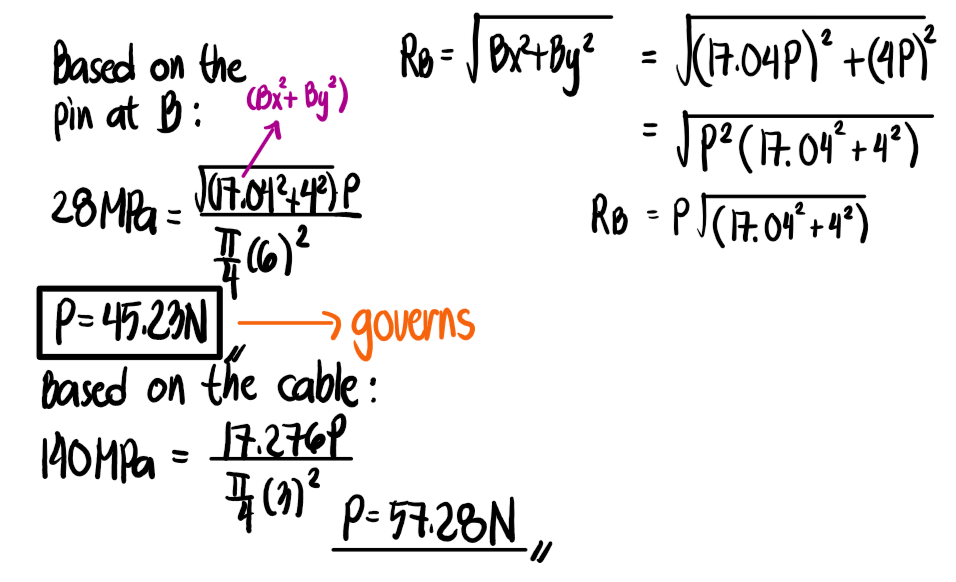 Based on the
pin at B:
(Bx²+ By²)
28MPa = √((17.04²+4²)) P / (π/4 (6)²)
P=45.23N → governs
Based on the cable:
140MPa = 17.276P / (π/4 (3)²)
P=57.28N
RB = √(Bx²+By²) = √((17.04P)² + (4P)²)
= √(P²(17.04²+4²))
RB = P√((17.04²+4²))